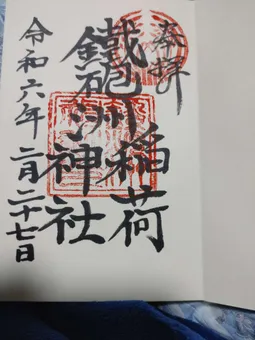 奉拝
鐵砲洲
稲荷
神社
令和六年二月二十七日